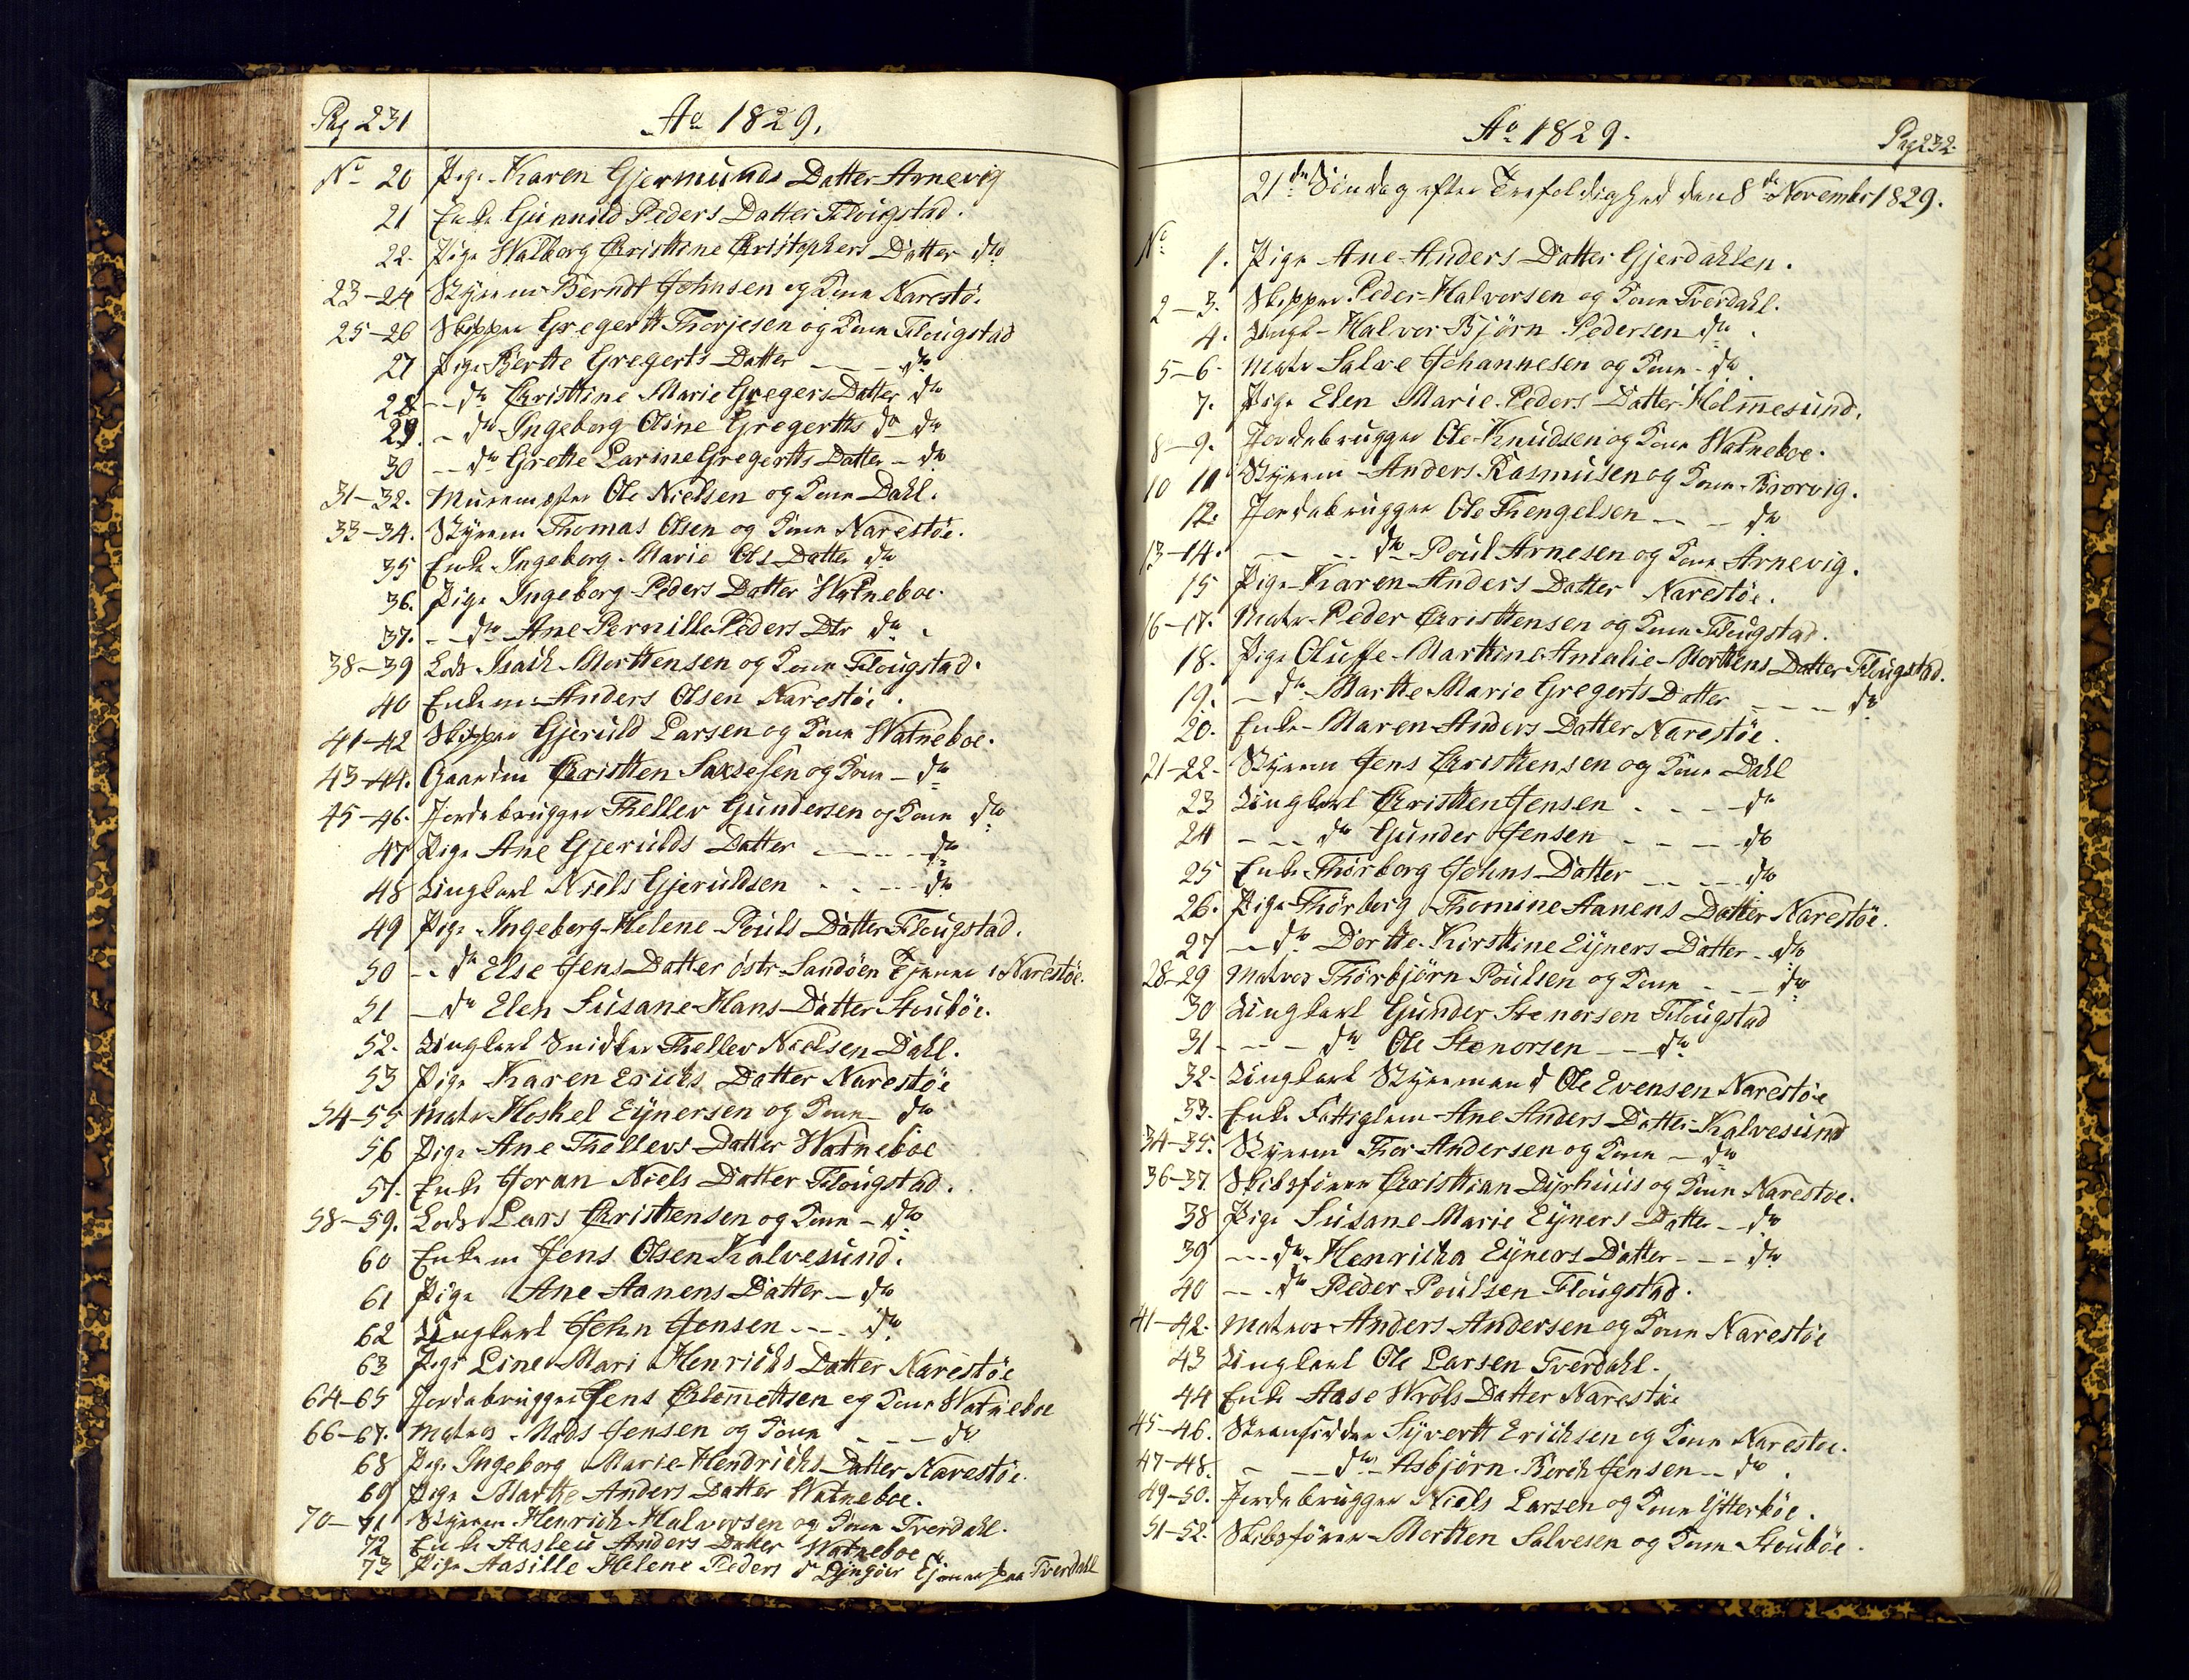 Pag 231
Ao 1829.
No 20 Pige Karen Gjermunds Datter Arnevig
21 Enke Gunnild Peders Datter Flougstad.
22. Pige Walborg Christine Christophers Datter do
23-24 Styrm Berndt Johnsen og Kone Narestö.
25-26 Skipper Gregertt Thorjesen og Kone Flougstad
27 Pige Berthe Gregerts Datter - - - do
28 - do Christine Marie Gregers Datter do
29. - do Ingeborg Oline Gregertts do do
30 - - do Grethe Larine Gregertts Datter - do
31-32. Muremester Ole Nielsen og Kone Dahl.
33-34. Styrm Thomas Olsen og Kone Narestöe.
35 Enke Ingeborg Marie Ols Datter do
36. Pige Ingeborg Peders Datter Watneboe.
37. - - do Ane Pernille Peders Dtr do.
38-39 Lods Isach Morttensen og Kone Flougstad.
40 Enkem Anders Olsen Narestöe.
41-42 Skipper Gjeruld Larsen og Kone Watneboe.
43-44. Gaardm Christten Saxsesen og Kone - do
45-46. Jordebrugger Thellev Gundersen og Kone do
47 Pige Ane Gjerulds Datter - - - - do
48 Ungkarl Niels Gjeruldsen - - - - do
49 Pige Ingeborg Helene Pouls Datter Flougstad.
50 - - do Else Jens Datter östr Sandöen Tjener i Narestöe.
51 - do Elen Susane Hans Datter Stouböe.
52. Ungkarl Snidker Thellev Nielsen Dahl.
53 Pige Karen Erichs Datter Narestöe
54-55 Matr Hoskel Eÿnersen og Kone - do
56 Pige Ane Thellevs Datter Watneboe
57. Enke Joran Niels Datter Flougstad.
58-59. Lods Lars Christtensen og Kone - do
60 Enkem Jens Olsen Kalvesund.
61 Pige Ane Aanens Datter - do
62 Ungkarl John Jensen - - - do
63 Pige Line Mari Henrichs Datter Narestöe
64-65 Jordebrugger Jens Clemettsen og Kone Watneboe
66-67. Matros Mads Jensen og Kone - - - do
68 Pige Ingeborg Marie Hendrichs Datter Narestöe.
69 Pige Marthe Anders Datter Watneboe.
70-71 Styrm Henrich Halvorsen og Kone Tverdahl.
72 Enke Aasleu Anders Datter Watneboe
73 Pige Aasille Helene Peders d Lÿngöer Tjener paa Tverdahl
Ao 1829.
Pag 232
21de Söndag efter Trefoldighed den 8de November 1829.
No
1. Pige Ane Anders Datter Gjerdahlen.
2-3. Skipper Peder Halvorsen og Kone Tverdahl.
4. Ungk Halvor Björn Pedersen do.
5-6. Matr Salve Johannesen og Kone - do.
7. Pige Elen Marie Peders Datter Holmesund.
8-9. Jordebrugger Ole Knudsen og Kone Watneboe.
10 11 Styrm Anders Rasmusen og Kone Brorvig.
12. Jordebrugger Ole Thengelsen - - - do
13-14. - - - do Poul Arnesen og Kone Arnevig.
15 Pige Karen Anders Datter Narestöe.
16-17. Matr Peder Christtensen og Kone Flougstad.
18. Pige Oluffe Marthine Amalie Morttens Datter Flougstad.
19. - do Marthe Marie Gregerts Datter - - - do
20. Enke Maren Anders Datter Narestöe.
21-22. Styrm Jens Christtensen og Kone Dahl
23 Ungkarl Christten Jensen - - - do
24 - - - do Gunder Jensen - - - do
25 Enke Thorborg Johns Datter - - - do
26. Pige Thorborg Thomine Aanens Datter Narestöe.
27 - do Dorthe Kirsttine Eÿners Datter - do
28-29 Matros Thorbjörn Poulsen og Kone - - - do
30 Ungkarl Gunder Stenorsen Flougstad
31 - - - do Ole Stenorsen - - do
32. Ungkarl Styrmand Ole Evensen Narestöe
33. Enke Fattiglem Ane Anders Datter Kalvesund
34-35. Styrm Thor Andersen og Kone - do
36-37. Skibsförer Christtian Dÿrhuus og Kone Narestoe.
38 Pige Susane Marie Eÿners Datter - do
39 - - do Henricha Eÿners Datter - - - do
40 - - do Peder Poulsen Flougstad.
41-42. Matros Anders Andersen og Kone Narestöe
43 Ungkarl Ole Larsen Tverdahl.
44 Enke Aase Wrols Datter Narestöe
45-46. Strandsidder Sÿvertt Erichsen og Kone Narestoe.
47-48. - - - do Asbjörn Berch Jensen - - do.
49-50. Jordebrugger Niels Larsen og Kone Ÿtterböe.
51-52. Skibsförer Mortten Salvesen og Kone Stouböe.